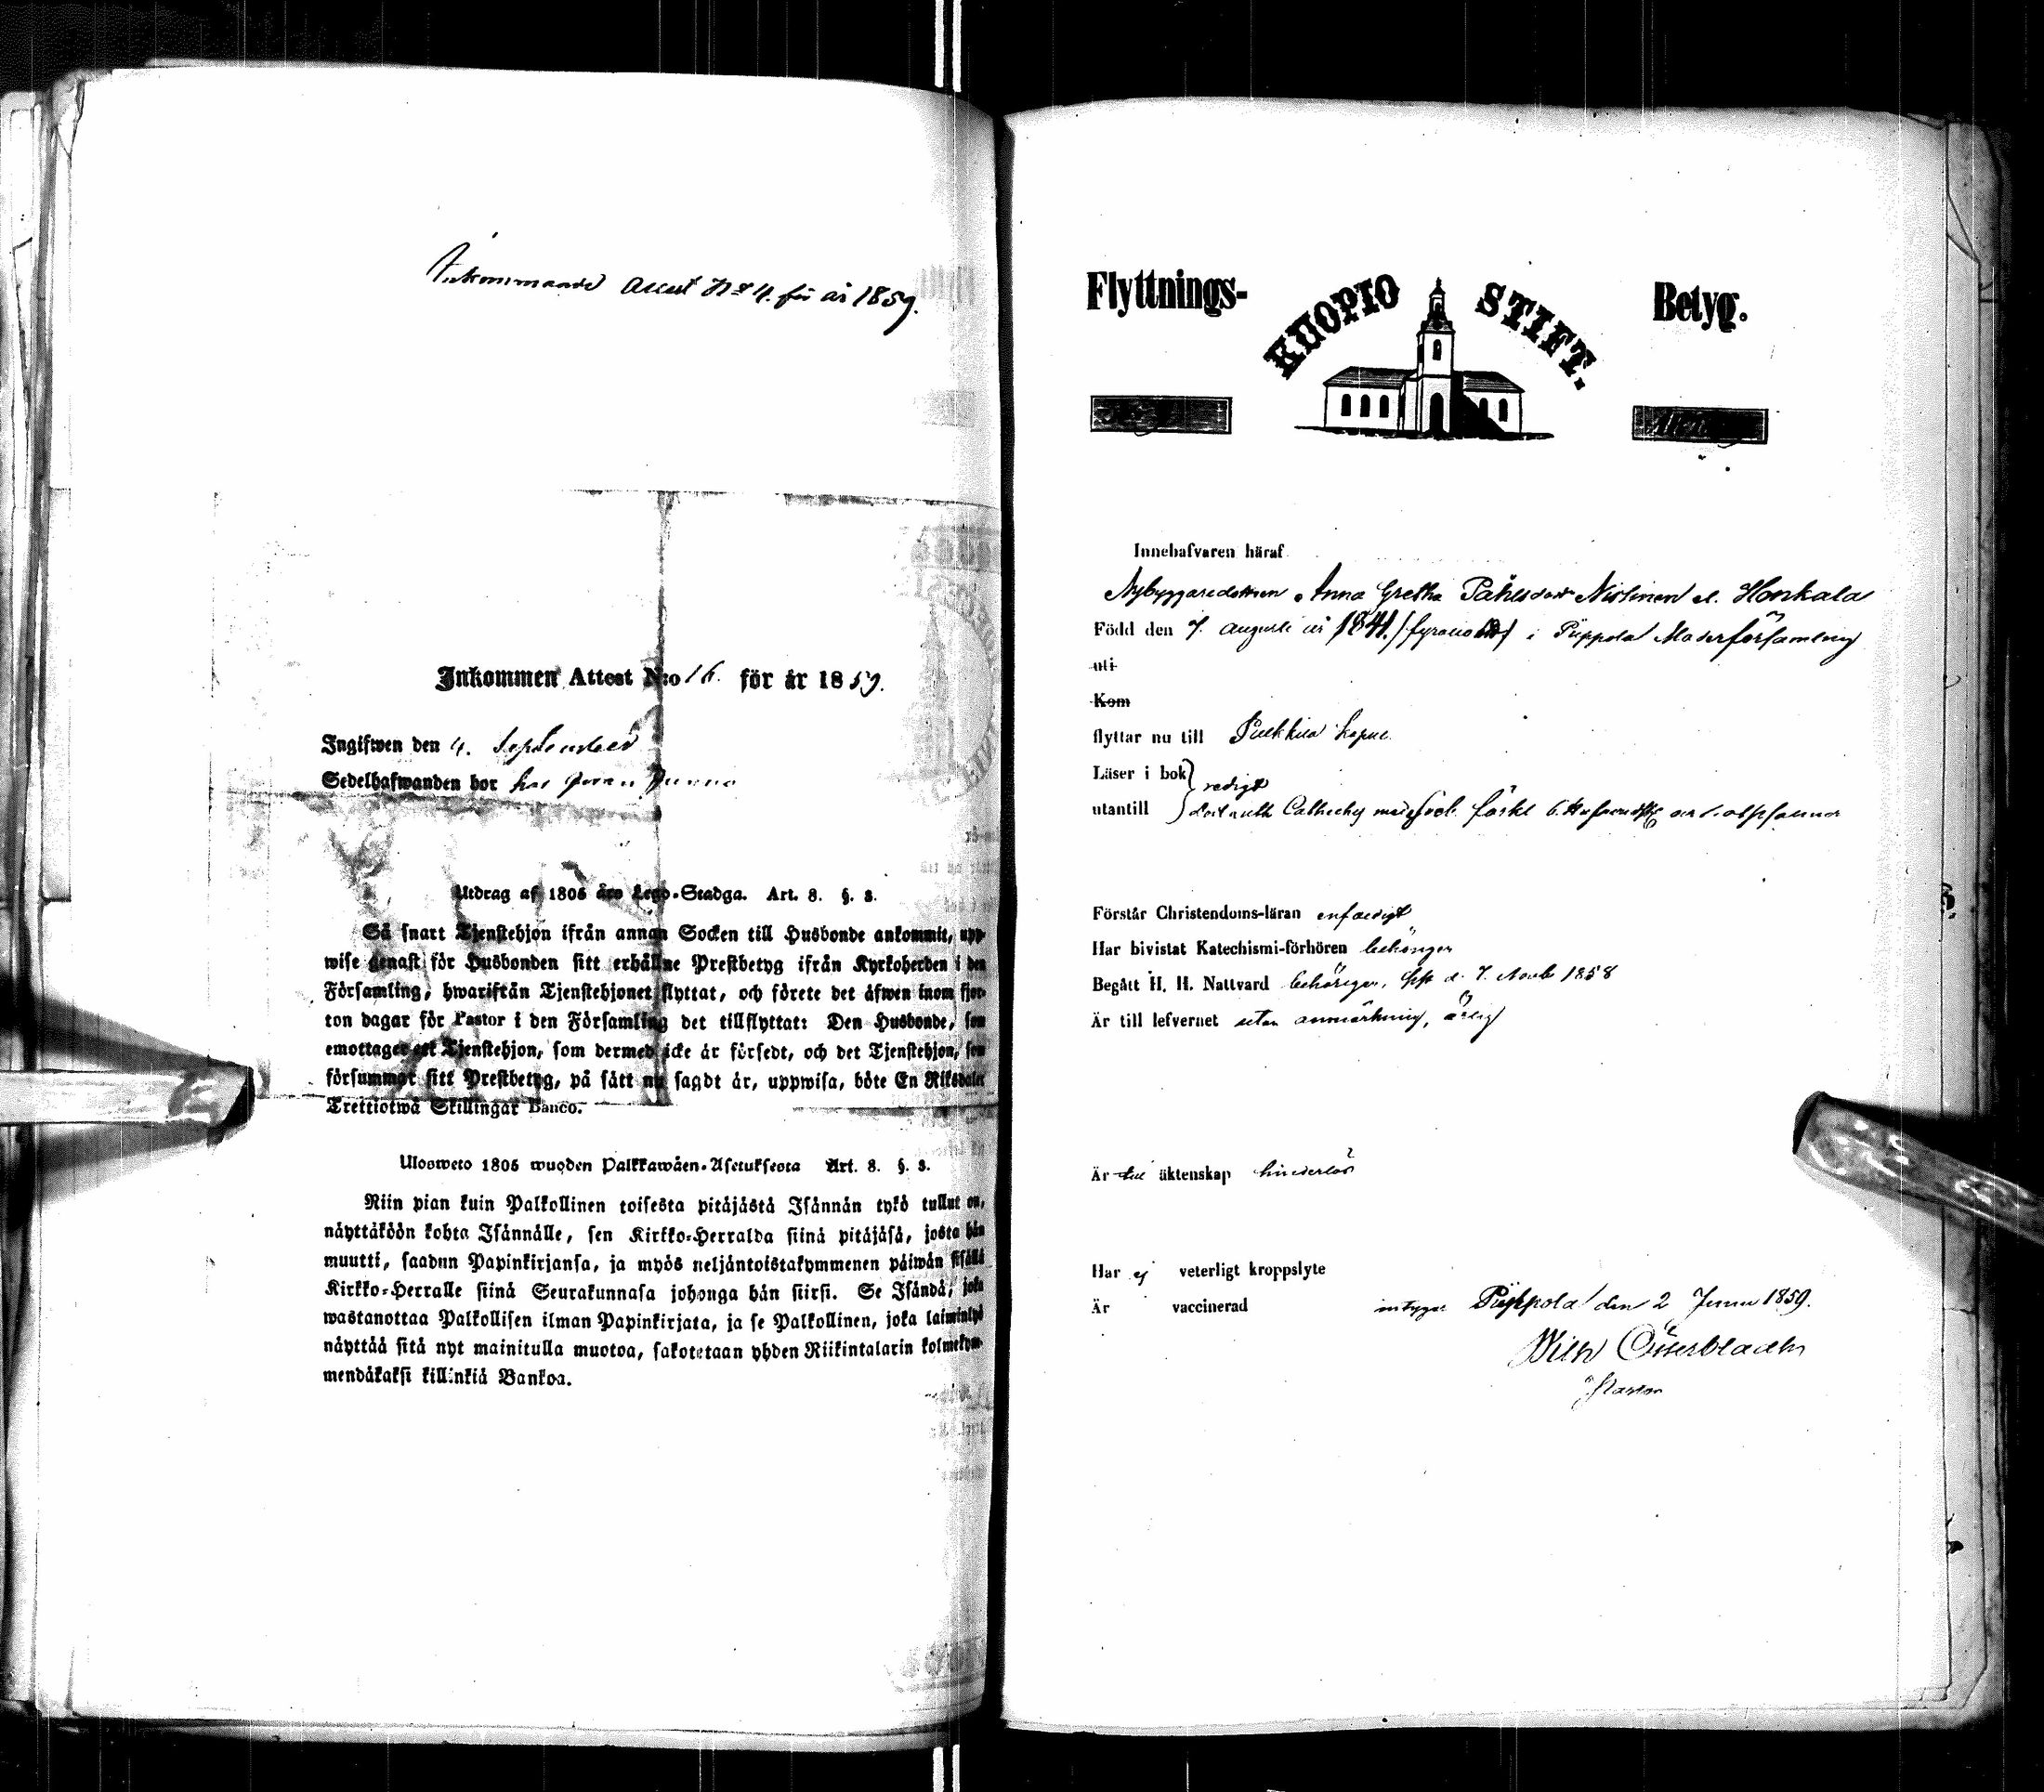 Inkommande Attest No 4. för år 1859.
Inkommen Attest N:o 16. för år 1859.
Ingifwen den 4. September
Sedelhafwanden bor hos Juntto
Utdrag af 1805 års Lego-Stadga. Art. 8. §. 3.
Så snart Tjenstehjon ifrån annan Socken till Husbonde ankommit, upp-
wise genast för Husbonden sitt erhållne Prestbetyg ifrån Kyrkoherden i den
Församling, hwarifrån Tjenstehjonet flyttat, och förete det äfwen inom fjor-
ton dagar för Pastor i den Församling det tillflyttat: Den Husbonde, som
emottager ett Tjenstehjon, som dermed icke är försedt, och det Tjenstehjon, som
försummar sitt Prestbetyg, på sätt nu sagdt är, uppwisa, böte En Riksdaler
Trettiotwå Skillingar Banco.
Ulosweto 1805 wuoden Palkkawäen-Asetuksesta Art. 8. §. 3.
Niin pian kuin Palkollinen toisesta pitäjästä Isännän tykö tullut on,
näyttäköön kohta Isännälle, sen Kirkko-Herralda siinä pitäjäsä, josta hän
muutti, saadun Papinkirjansa, ja myös neljäntoistakymmenen päiwän sisällä
Kirkko-Herralle siinä Seurakunnasa johonga hän siirsi. Se Isändä, joka
wastanottaa Palkollisen ilman Papinkirjata, ja se Palkollinen, joka laiminlyö
näyttää sitä nyt mainitulla muotoa, sakotetaan yhden Riikintalarin kolmekym-
mendäkaksi killinkiä Bankoa.
Flyttnings- KUOPIO STIFT. Betyg.
Innehafvaren häraf
Nybyggaredottren Anna Gretha Påhlsdotr Nissinen el. Honkala
Född den 7. Augusti år 1841. / i Pippola Moderförsamling
uti
Kom
flyttar nu till Pulkkila Kapell.
Läser i bok redigt
utantill
Förstår Christendoms-läran enfaldigt
Har bivistat Katechismi-förhören behörigen
Begått H. H. Nattvard behörigen, d. 7. Novb 1858
Är till lefvernet utan anmärkning, ärlig
Är till äktenskap hinderlös
Har ej veterligt kroppslyte
Är vaccinerad intygar Pippola den 2 Junii 1859.
Wilh Österbladh
Pastor